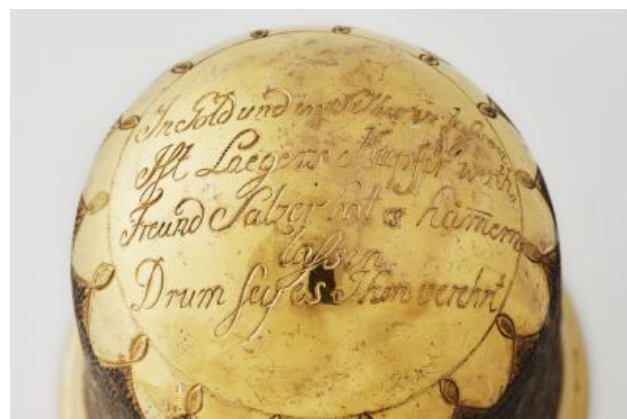 In Gold und
Ist Laegens Kupfer werth,
Freund Salzer hat es hämern
lassen
Drum sey es Ihm verehrt